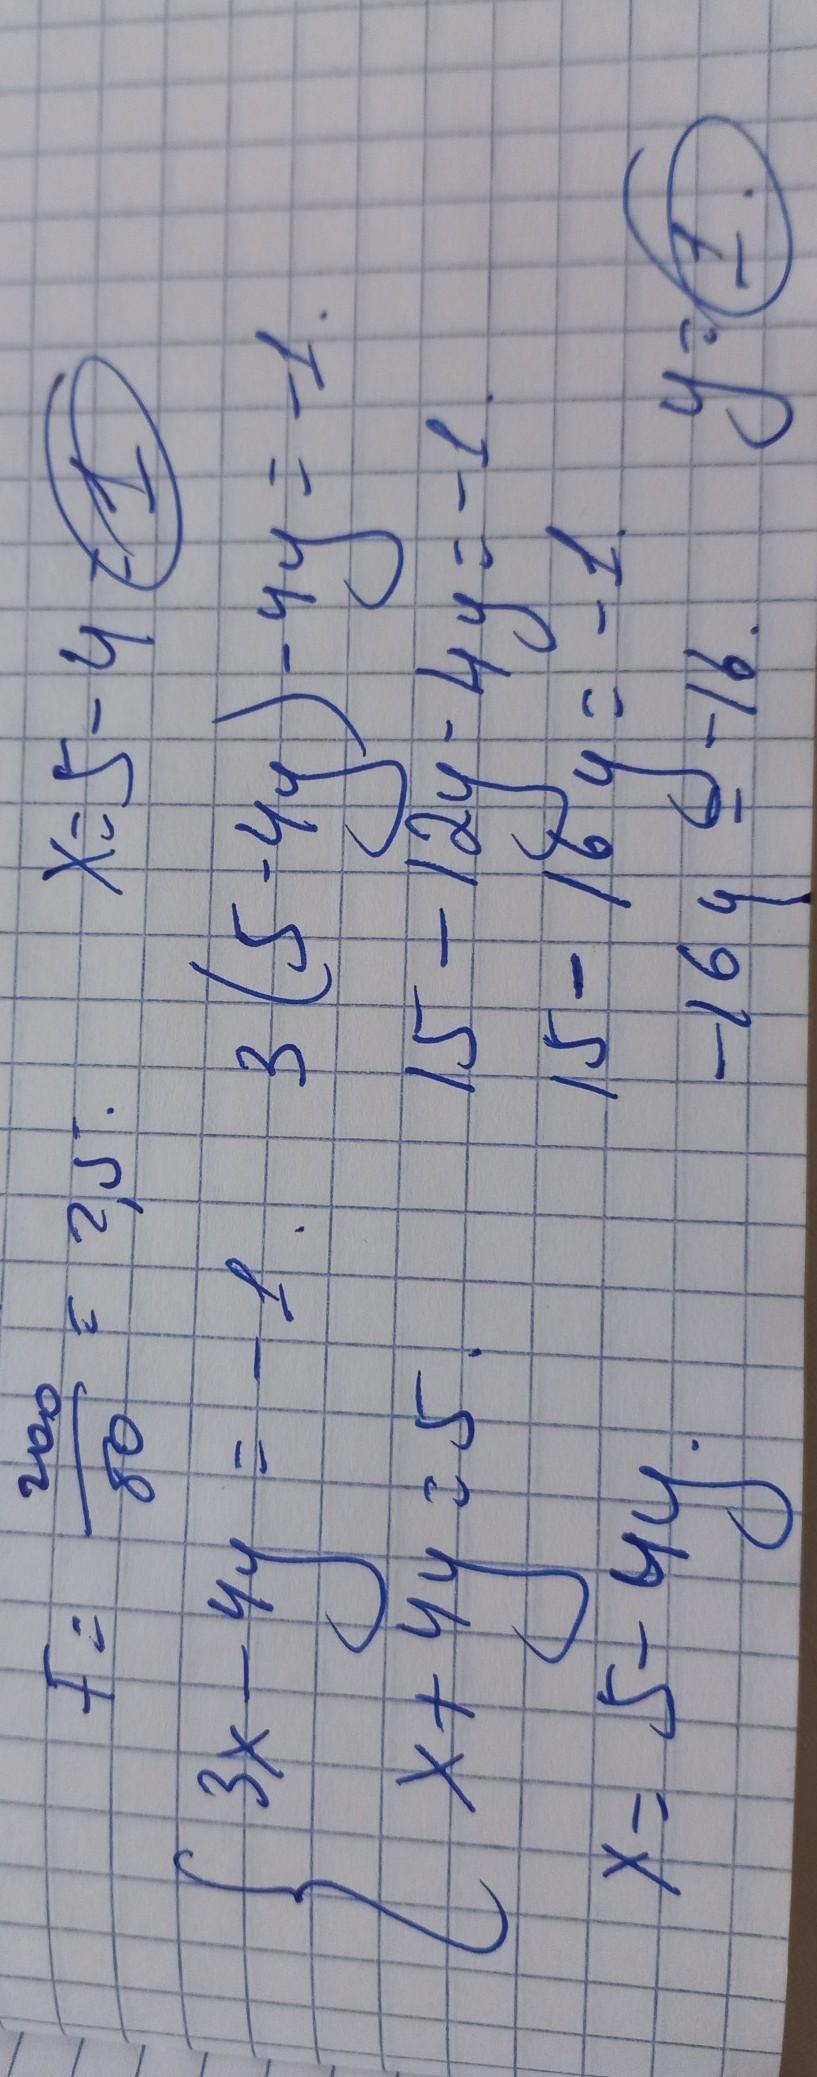 F = 200/80 = 2,5.
{ 3x - 4y = -1.
x + 4y = 5.
x = 5 - 4y.
x = 5 - 4 = 1
3(5 - 4y) - 4y = -1.
15 - 12y - 4y = -1.
15 - 16y = -1
-16y = -16.
y = 1.